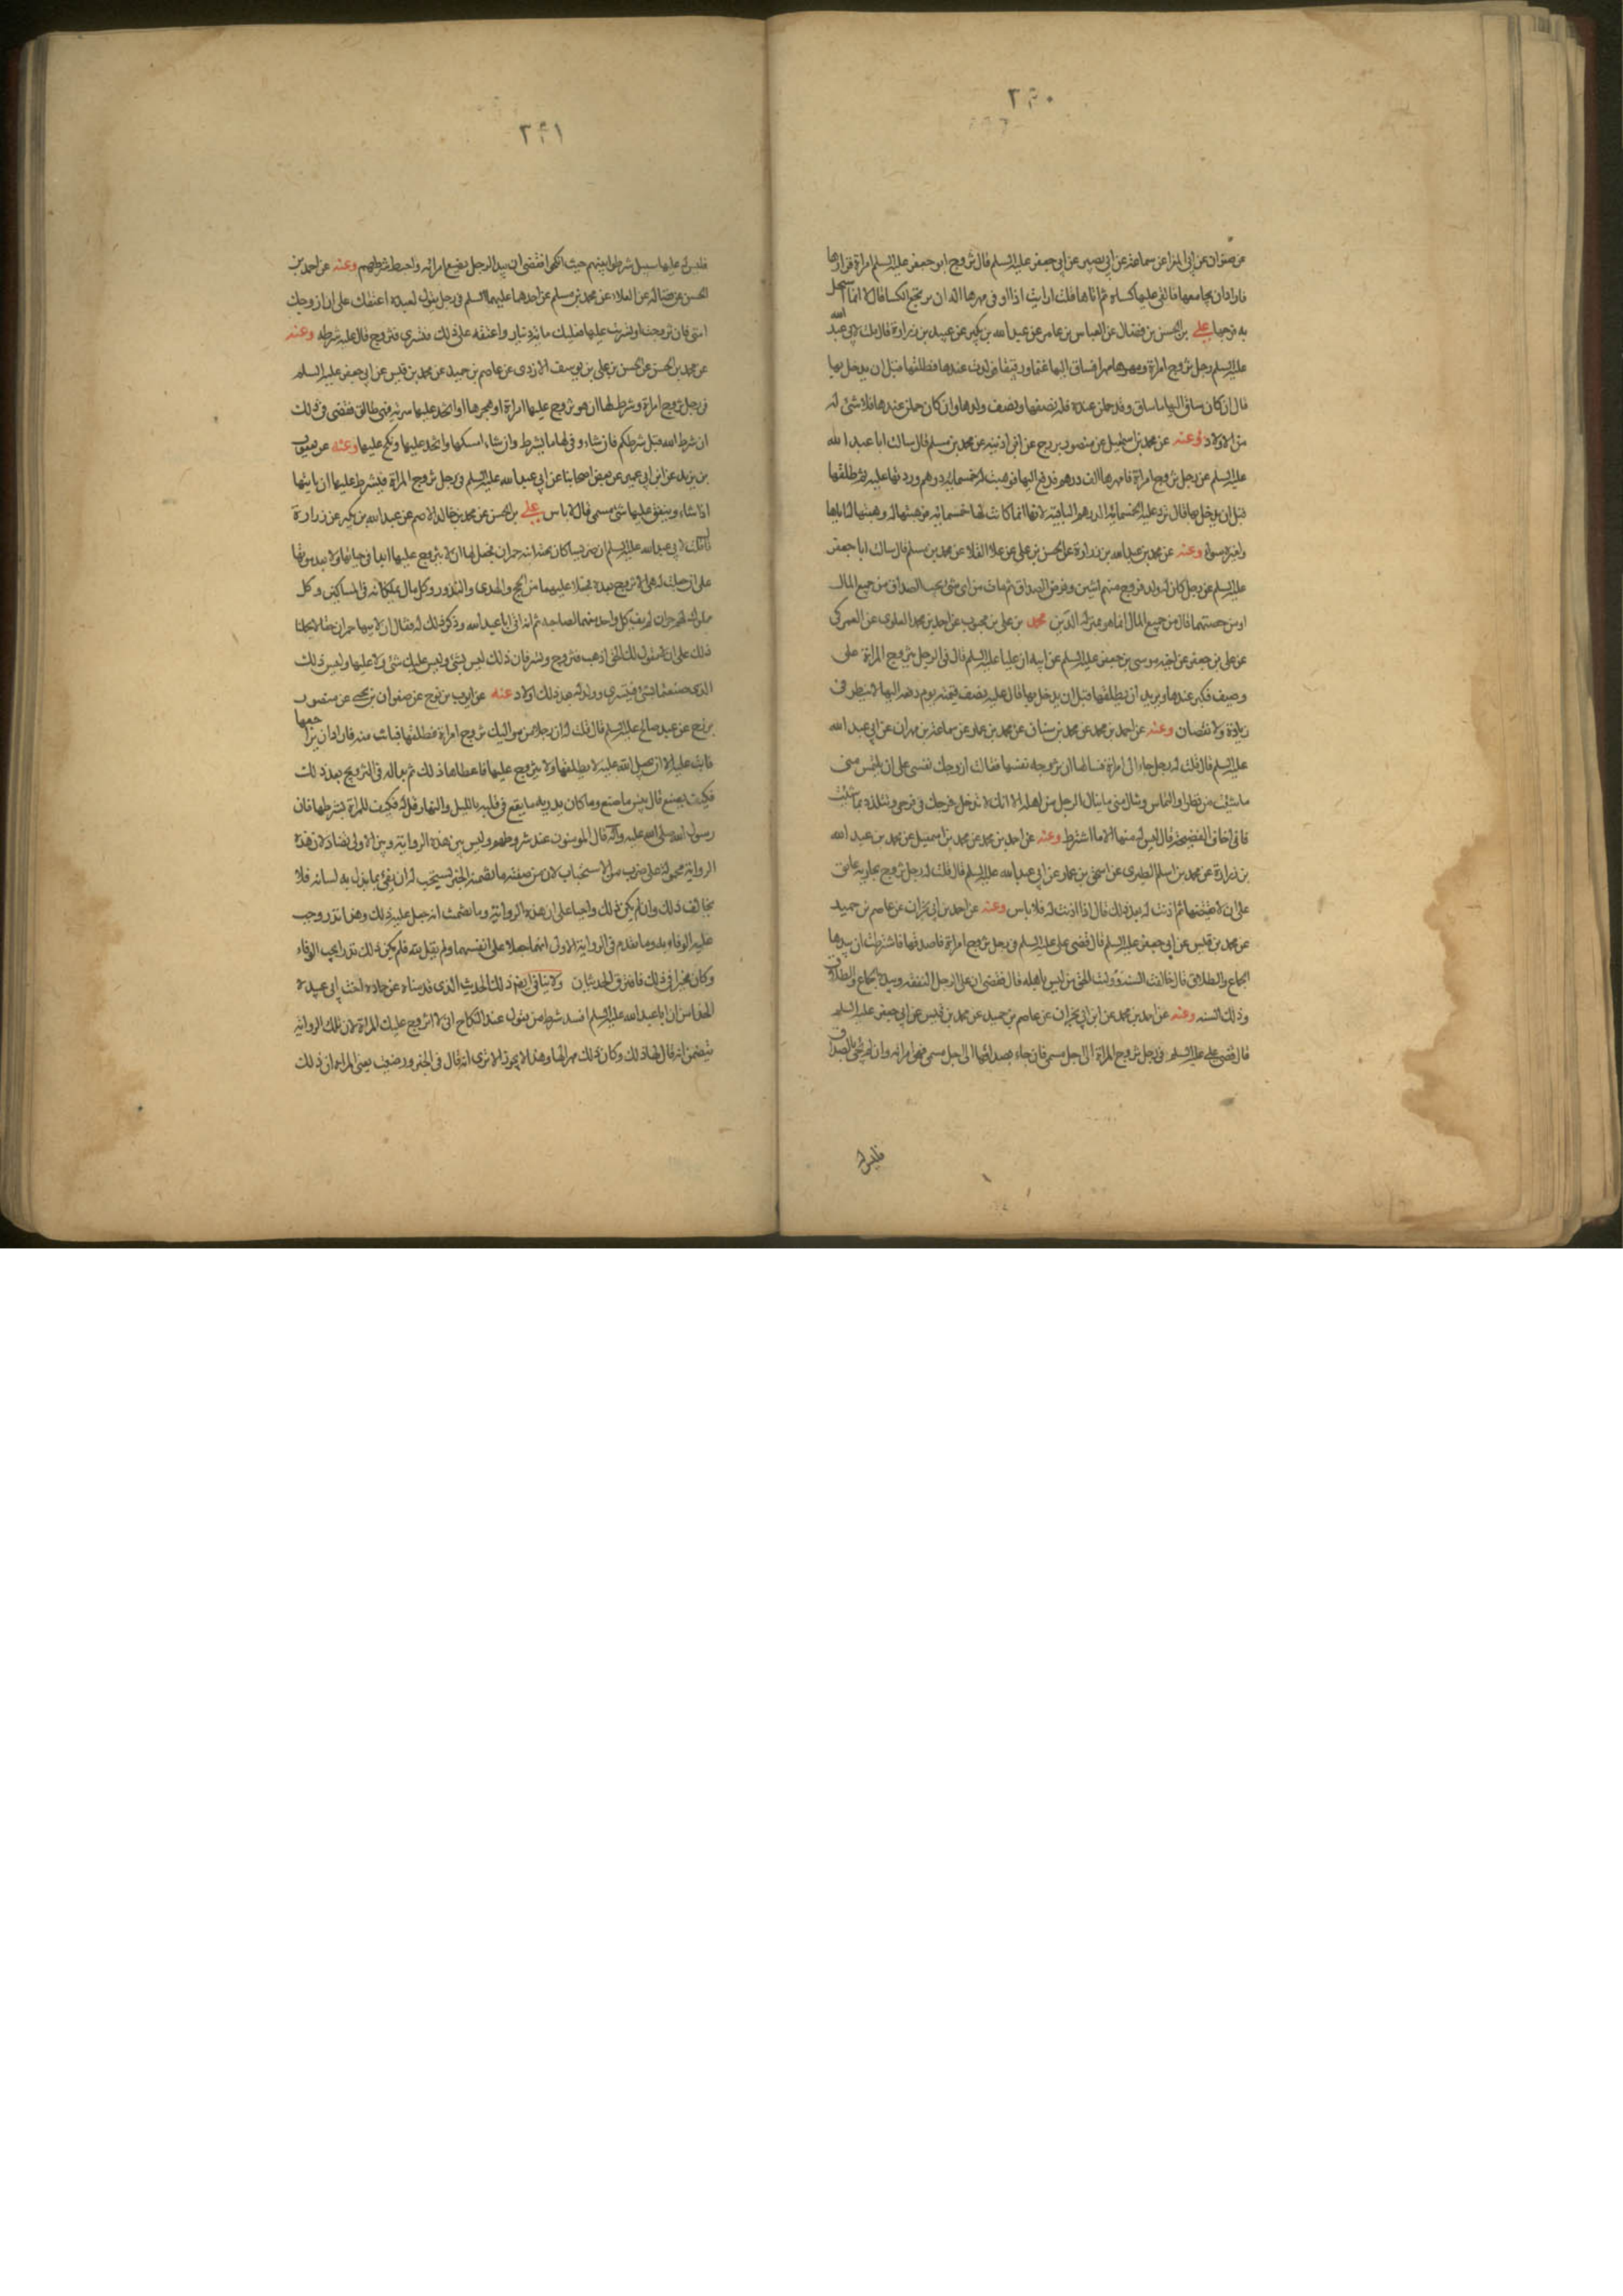 ٢٩٠
عن صفوان عن ابي المعزا عن سماعة عن ابي بصير عن ابي جعفر عليه السلم قال تزوج ابو جعفر عليه السلم امراة فزارها
فاراد ان يجامعها فالقى عليها كساه ثم اتاها قلت ارايت اذا اوفى مهرها اله ان يرتجع الكسا قال لا انما استحل
به فرجها علي بن الحسن بن فضال عن العباس بن عامر عن عبد الله بن بكير عن عبيد بن زرارة قال قلت لابي عبد الله
عليه السلم رجل تزوج امراة ومهرها مهرا فساق اليها غنما ورقيقا فولدت عندها فطلقها قبل ان يدخل بها
قال ان كان ساق اليها ما ساق وقد حملن عنده فله نصفها ونصف ولدها وان كان حملن عندها فلا شئ له
من الاولاد وعنه عن محمد بن اسمعيل عن منصور بن بزرج عن ابن اذينه عن محمد بن مسلم قال سالت ابا عبد الله
عليه السلم عن رجل تزوج امراة فامهرها الف درهم فدفع اليها فوهبت له خمسمائة درهم وردتها عليه ثم طلقها
قبل ان يدخل بها قال ترد عليه الخمسمائة الدرهم الباقية لانها انما كانت لها خمسمائة فوهبتها له وهبتها له اياها
ولغيره سواء وعنه عن محمد بن عبد الله بن زرارة عن الحسن بن علي عن علا القلا عن محمد بن مسلم قال سالت ابا جعفر
عليه السلم عن رجل كان له ولد فزوج منهم اثنين وفرض الصداق ثم مات من اي شئ يحسب الصداق من جميع المال
او من حصتهما قال من جميع المال انما هو بمنزلة الدين محمد بن علي بن محبوب عن احمد بن محمد العلوي عن العمركي
عن علي بن جعفر عن اخيه موسى بن جعفر عليه السلم عن ابيه ان عليا عليه السلم قال في الرجل يتزوج المراة على
وصيف فكبر عندها ويريد ان يطلقها قبل ان يدخل بها قال عليه نصف قيمته يوم دفعه اليها لا ينظر في
زيادة ولا نقصان وعنه عن احمد بن محمد عن محمد بن سنان عن محمد بن عمار عن سماعة بن مهران عن ابي عبد الله
عليه السلم قال قلت له رجل جاء الى امراة فسالها ان تزوجه نفسها فقالت ازوجك نفسي على ان تلتمس منى
ما شئت من نظر او التماس وتنال منى ما ينال الرجل من اهله الا انك لا تدخل فرجك في فرجي وتتلذذ بما شئت
فاني اخاف الفضيحة قال ليس له منها الا ما اشترط وعنه عن احمد بن محمد عن محمد بن اسمعيل عن محمد بن عبد الله
بن زرارة عن محمد بن اسلم الطبري عن اسحق بن عمار عن ابي عبد الله عليه السلم قال قلت له رجل تزوج بجارية عاتق
على ان لا يقتضها ثم اذنت له بعد ذلك قال اذا اذنت له فلا باس وعنه عن احمد بن ابي نجران عن عاصم بن حميد
عن محمد بن قيس عن ابي جعفر عليه السلم قال قضى علي عليه السلم في رجل تزوج امراة فاصدقها فاشترطت ان بيدها
الجماع والطلاق قال خالفت السنة وولت الحق من ليس باهله قال فقضى ان على الرجل النفقة وبيده الجماع والطلاق
وذلك السنه وعنه عن احمد بن محمد عن ابن ابي نجران عن عاصم بن حميد عن محمد بن قيس عن ابي جعفر عليه السلم
قال قضى علي عليه السلم في رجل تزوج المراة الى اجل مسمى فان جاء بصداقها الى اجل مسمى فهي امراته وان لم يجئ بالصداق
فليس له
٢٩١
فليس له عليها سبيل شرطوا بينهم حيث انكحوا فقضى ان بيد الرجل بضع امراته واحبط شرطهم وعنه عن احمد بن
الحسن عن فضالة عن العلاء عن محمد بن مسلم عن احدهما عليهما السلم في رجل يقول لعبده اعتقك على ان ازوجك
ابنتي فان تزوجت او تسريت عليها فعليك مائة دينار واعتقه على ذلك فتسرى فتزوج قال عليه شرطه وعنه
عن محمد بن الحسن عن الحسن بن علي بن يوسف الازدي عن عاصم بن حميد عن محمد بن قيس عن ابي جعفر عليه السلم
في رجل تزوج امراة وشرط لها ان هو تزوج عليها امراة او هجرها او اتخذ عليها سرية فهي طالق فقضى في ذلك
ان شرط الله قبل شرطكم فان شاء وفى لها ما يشرط وان شاء امسكها واتخذ عليها ونكح عليها وعنه عن يعقوب
بن يزيد عن ابن ابي عمير عن بعض اصحابنا عن ابي عبد الله عليه السلم في رجل تزوج المراة فيشترط عليها ان ياتيها
اذا شاء وينفق عليها شئ مسمى قال لا باس علي بن الحسن عن محمد بن خالد الاصم عن عبد الله بن بكير عن زرارة
قال قلت لابي عبد الله عليه السلم ان ضريسا كان تحته ابنه حمران فجعل لها ان لا يتزوج عليها ابدا في حياتها ولا بعد موتها
على ان جعلت له هي الا تزوج بعده فجعلا عليهما من الحج والهدى والنذور وكل مال يملكانه في المساكين وكل
مملوك لهم حران لم يف كل واحد منهما لصاحبه ثم انه اتى ابا عبد الله وذكر ذلك له فقال ان لابيها حمران حقا لا يحملنا
ذلك على ان لا نقول لك الحق اذهب فتزوج وتسر فان ذلك ليس بشئ وليس عليك شئ ولا عليها وليس ذلك
الذي صنعتما بشئ فتسرى وولد له بعد ذلك اولاد عنه عن ايوب بن نوح عن صفوان بن يحيى عن منصور
بزرج عن عبد صالح عليه السلم قال قلت له ان رجلا من مواليك تزوج امراة فطلقها فبانت منه فاراد ان يراجعها
فابت عليه الا ان يجعل لله عليه لا يطلقها ولا يتزوج عليها فاعطاها ذلك ثم بدا له في التزويج بعد ذلك
فكيف يصنع قال بئس ما صنع وما كان يدريه ما يقع في قلبه بالليل والنهار قل له فليف للمراة بشرطها فان
رسول الله صلى الله عليه وآله قال المومنون عند شروطهم وليس بين هذه الرواية وبين الاولى تضاد لان هذه
الرواية محمولة على ضرب من الاستحباب لان من صفته ما تضمنه الخبر يستحب له ان يفي بما بذل به لسانه فلا
يخالف ذلك وان لم يكن ذلك واجبا على ان هذه الرواية وما تضمنت انه جعل عليه ذلك وهذا نذر وجب
عليه الوفاء به وما تقدم في الرواية الاولى انهما جعلا على انفسهما ولم يقل لله فلم يكن ذلك نذرا يجب الوفاء
وكان مخيرا في ذلك فافترق الحديثان ولا ينافي ايضا ذلك الحديث الذي قدمناه عن حمادة اخت ابي عبيدة
الحذاء من ان ابا عبد الله عليه السلم افسد شرط من يقول عند النكاح اني لا اتزوج عليك المراة لان تلك الرواية
تتضمن انه قال لها ذلك وكان ذلك مهرا لها وهذا لا يجوز الا ترى انه قال في الخبر ورضيت يعنى المراة ان ذلك